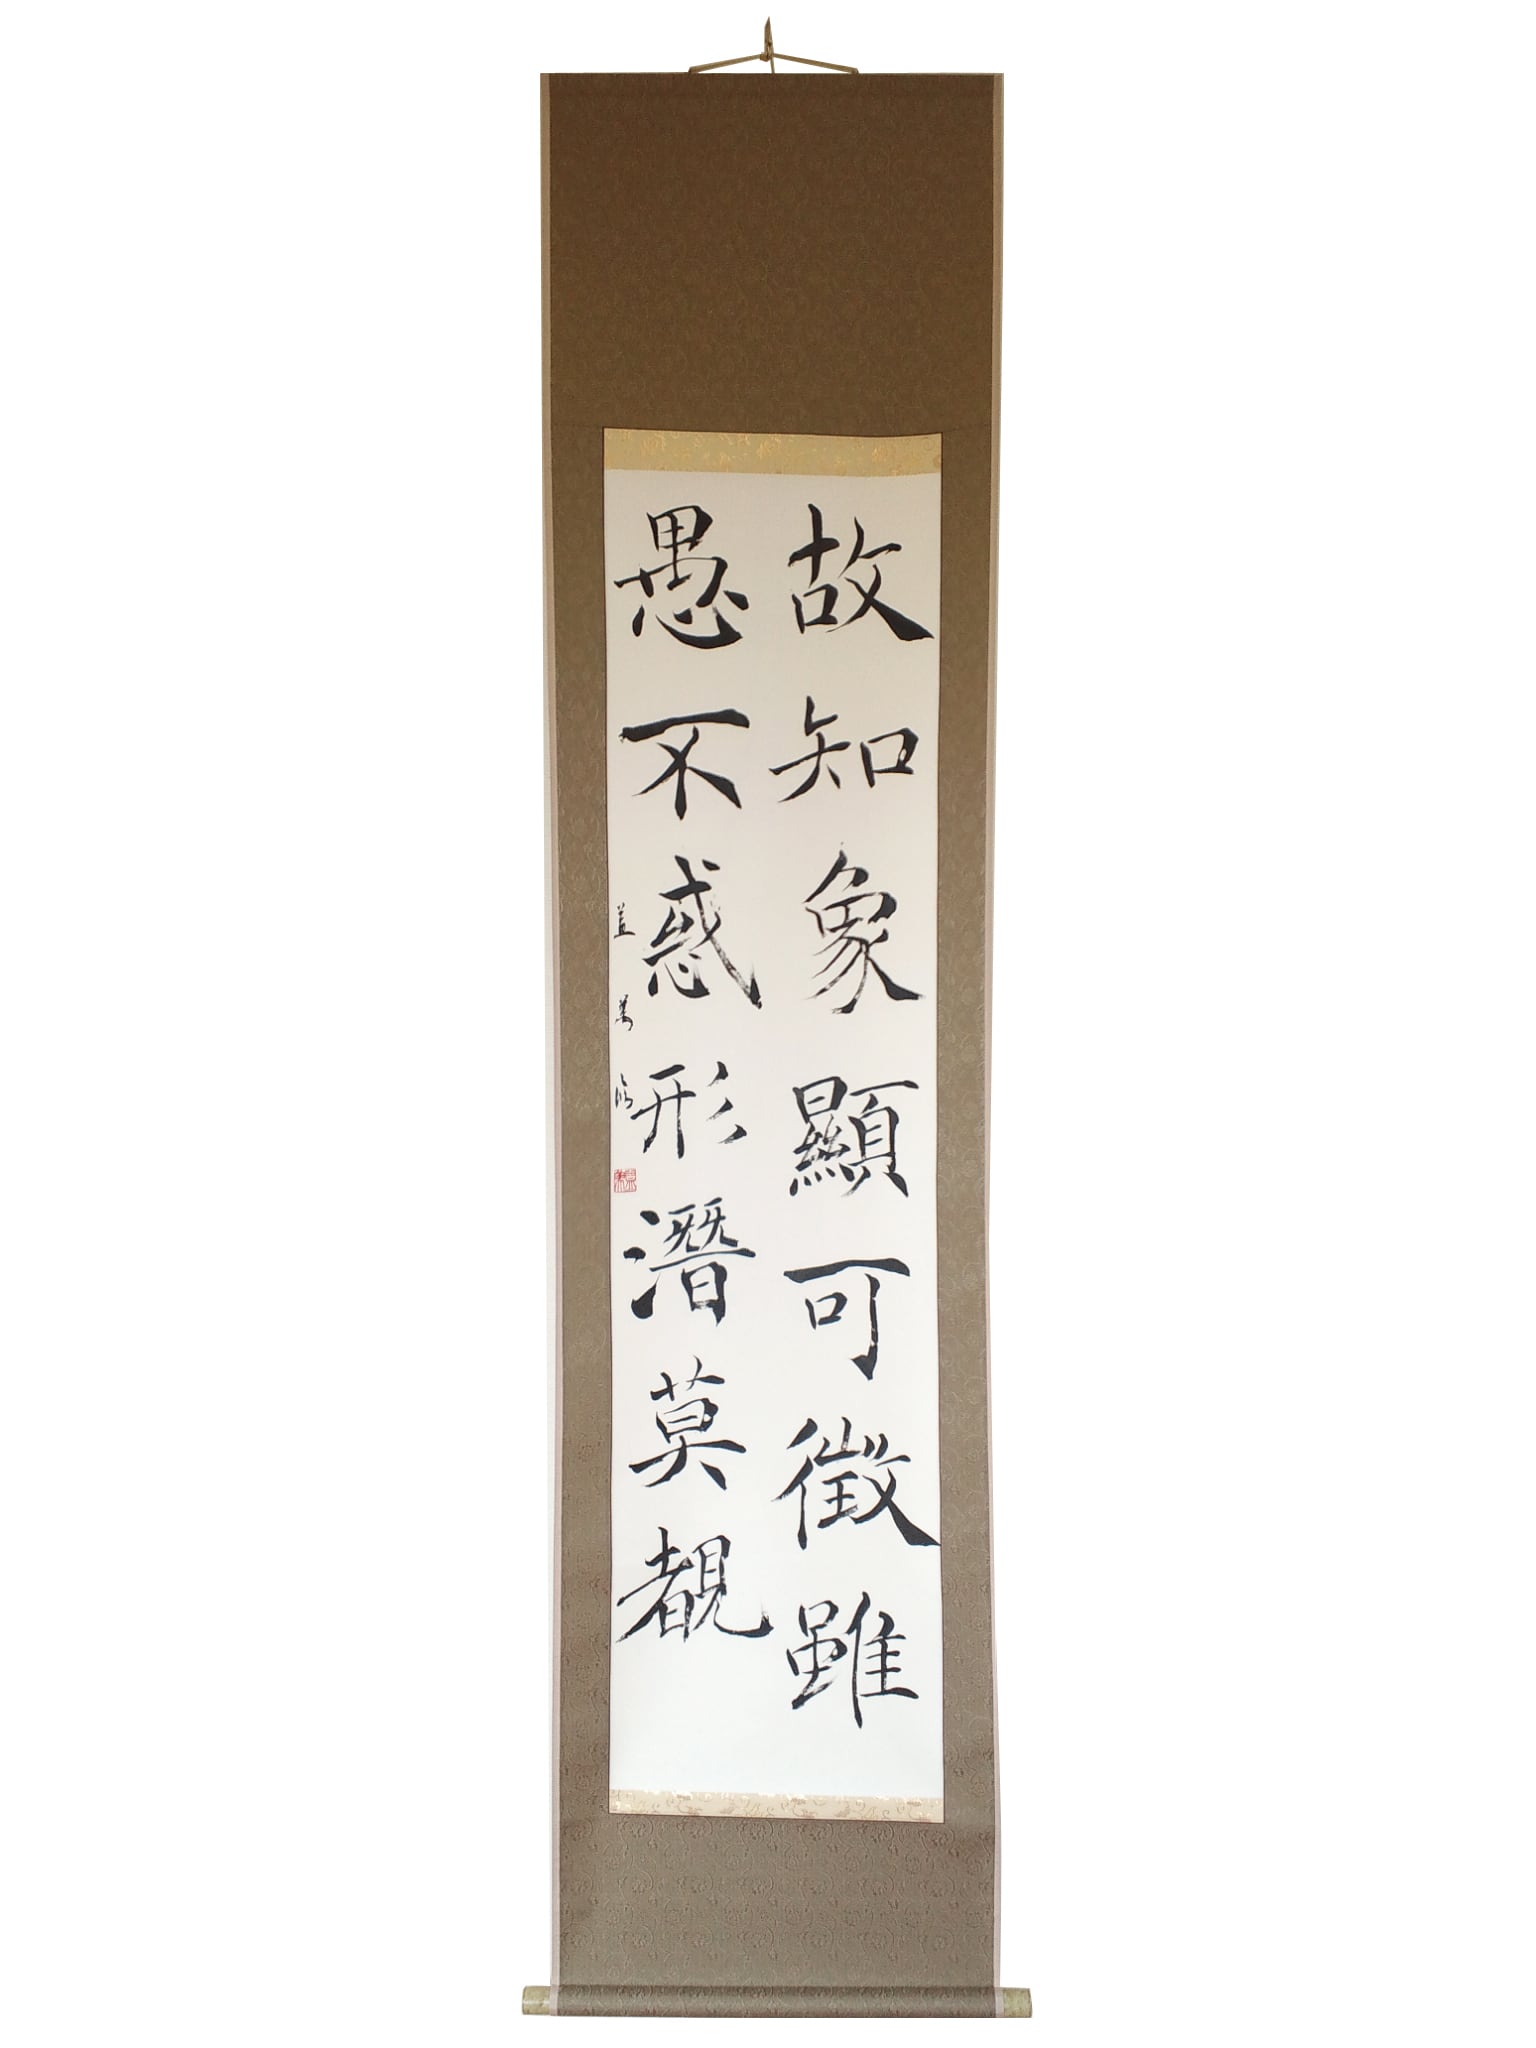 故知象顯可徵雖
愚不惑形潛莫覩